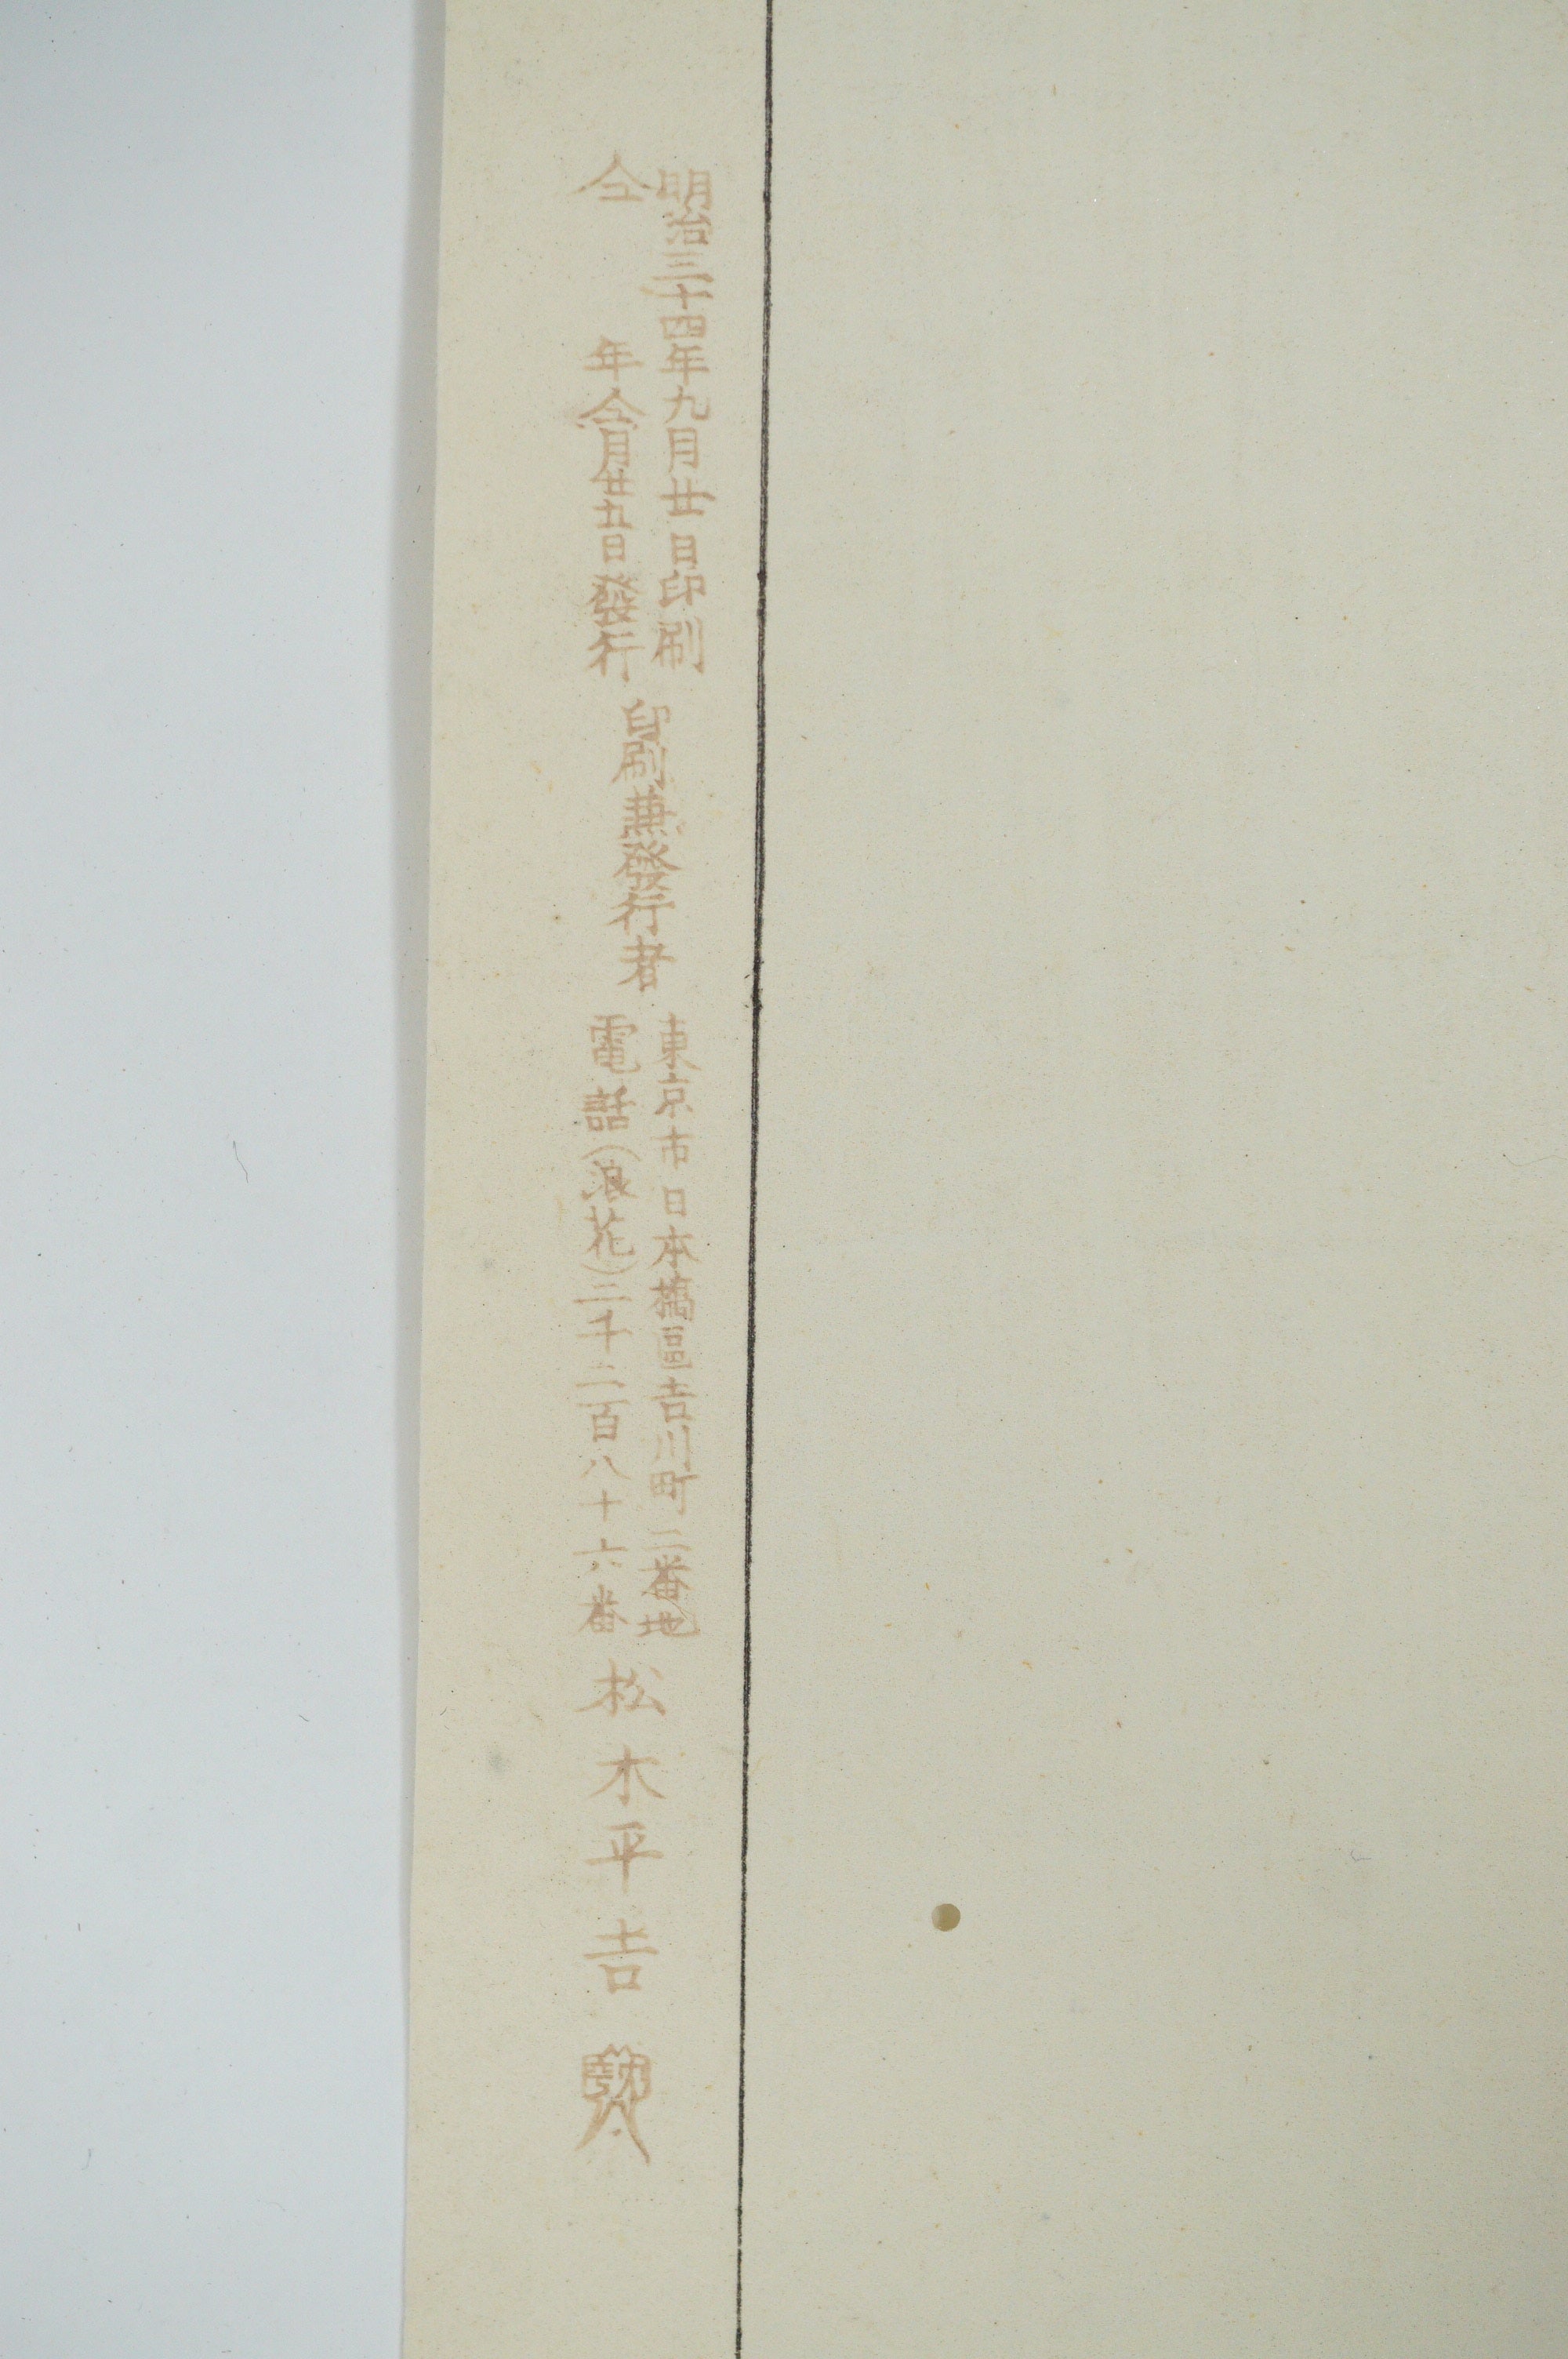 明治三十四年九月廿日印刷
仝年仝月廿九日發行
印刷兼發行者
東京市日本橋區吉川町二番地
電話（浪花）二千二百八十六番
松木平吉